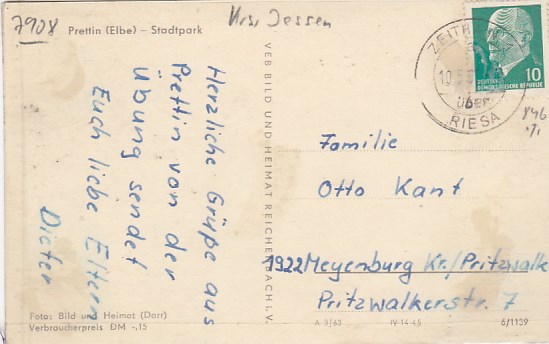 7908
Prettin (Elbe) – Stadtpark
Krs. Jessen
Herzliche Grüße aus
Prettin von der
Übung sendet
Euch liebe Eltern
Dieter
VEB BILD UND HEIMAT REICHENBACH I. V.
10
DEUTSCHE
DEMOKRATISCHE REPUBLIK
ÜBER
RIESA
Familie
Otto Kant
1922 Meyenburg Kr./Pritzwalk
Pritzwalkerstr. 7
Foto: Bild und Heimat (Darr)
Verbraucherpreis DM -,15
A 3/63
IV-14-45
6/1139